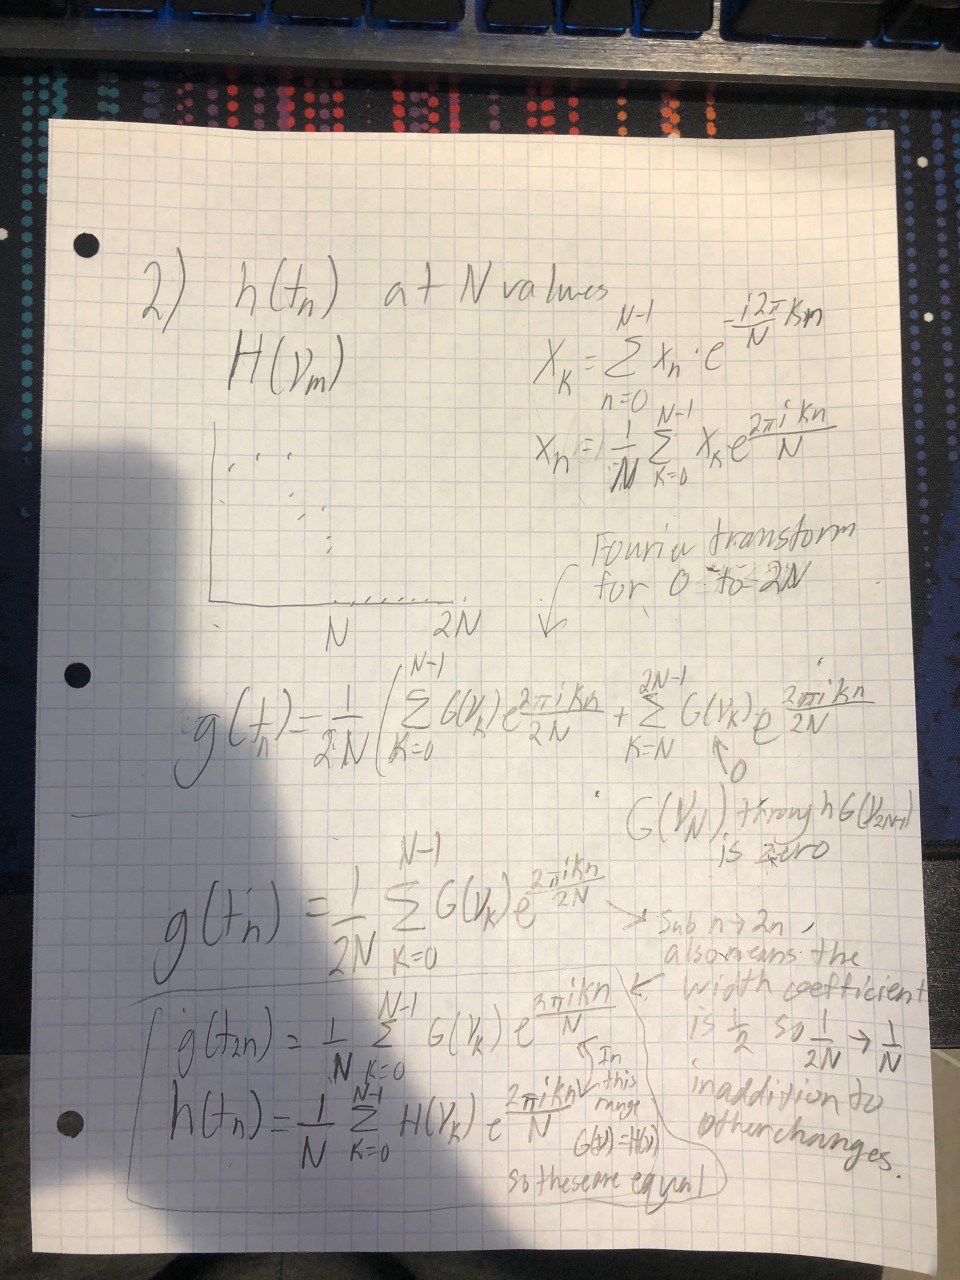 2) h(tₙ) at N values
H(νₘ)
X_K = Σ_{n=0}^{N-1} xₙ · e^{-i2π/N Kn}
xₙ = 1/N Σ_{K=0}^{N-1} X_K e^{2πi Kn/N}
Fourier transform
for 0 to 2N
N 2N
g(tₙ) = 1/2N ( Σ_{K=0}^{N-1} G(ν_K) e^{2πiKn/2N} + Σ_{K=N}^{2N-1} G(ν_K) e^{2πiKn/2N}
0
G(ν_N) through G(ν_{2N-1})
is zero
g(tₙ) = 1/2N Σ_{K=0}^{N-1} G(ν_K) e^{2πiKn/2N}
Sub n→2n,
also means the
width coefficient
is 1/2 so 1/2N → 1/N
in addition to
other changes.
g(t₂ₙ) = 1/N Σ_{K=0}^{N-1} G(ν_K) e^{2πiKn/N}
In
this
range
h(tₙ) = 1/N Σ_{K=0}^{N-1} H(ν_K) e^{2πiKn/N}
G(ν) = H(ν)
so these are equal